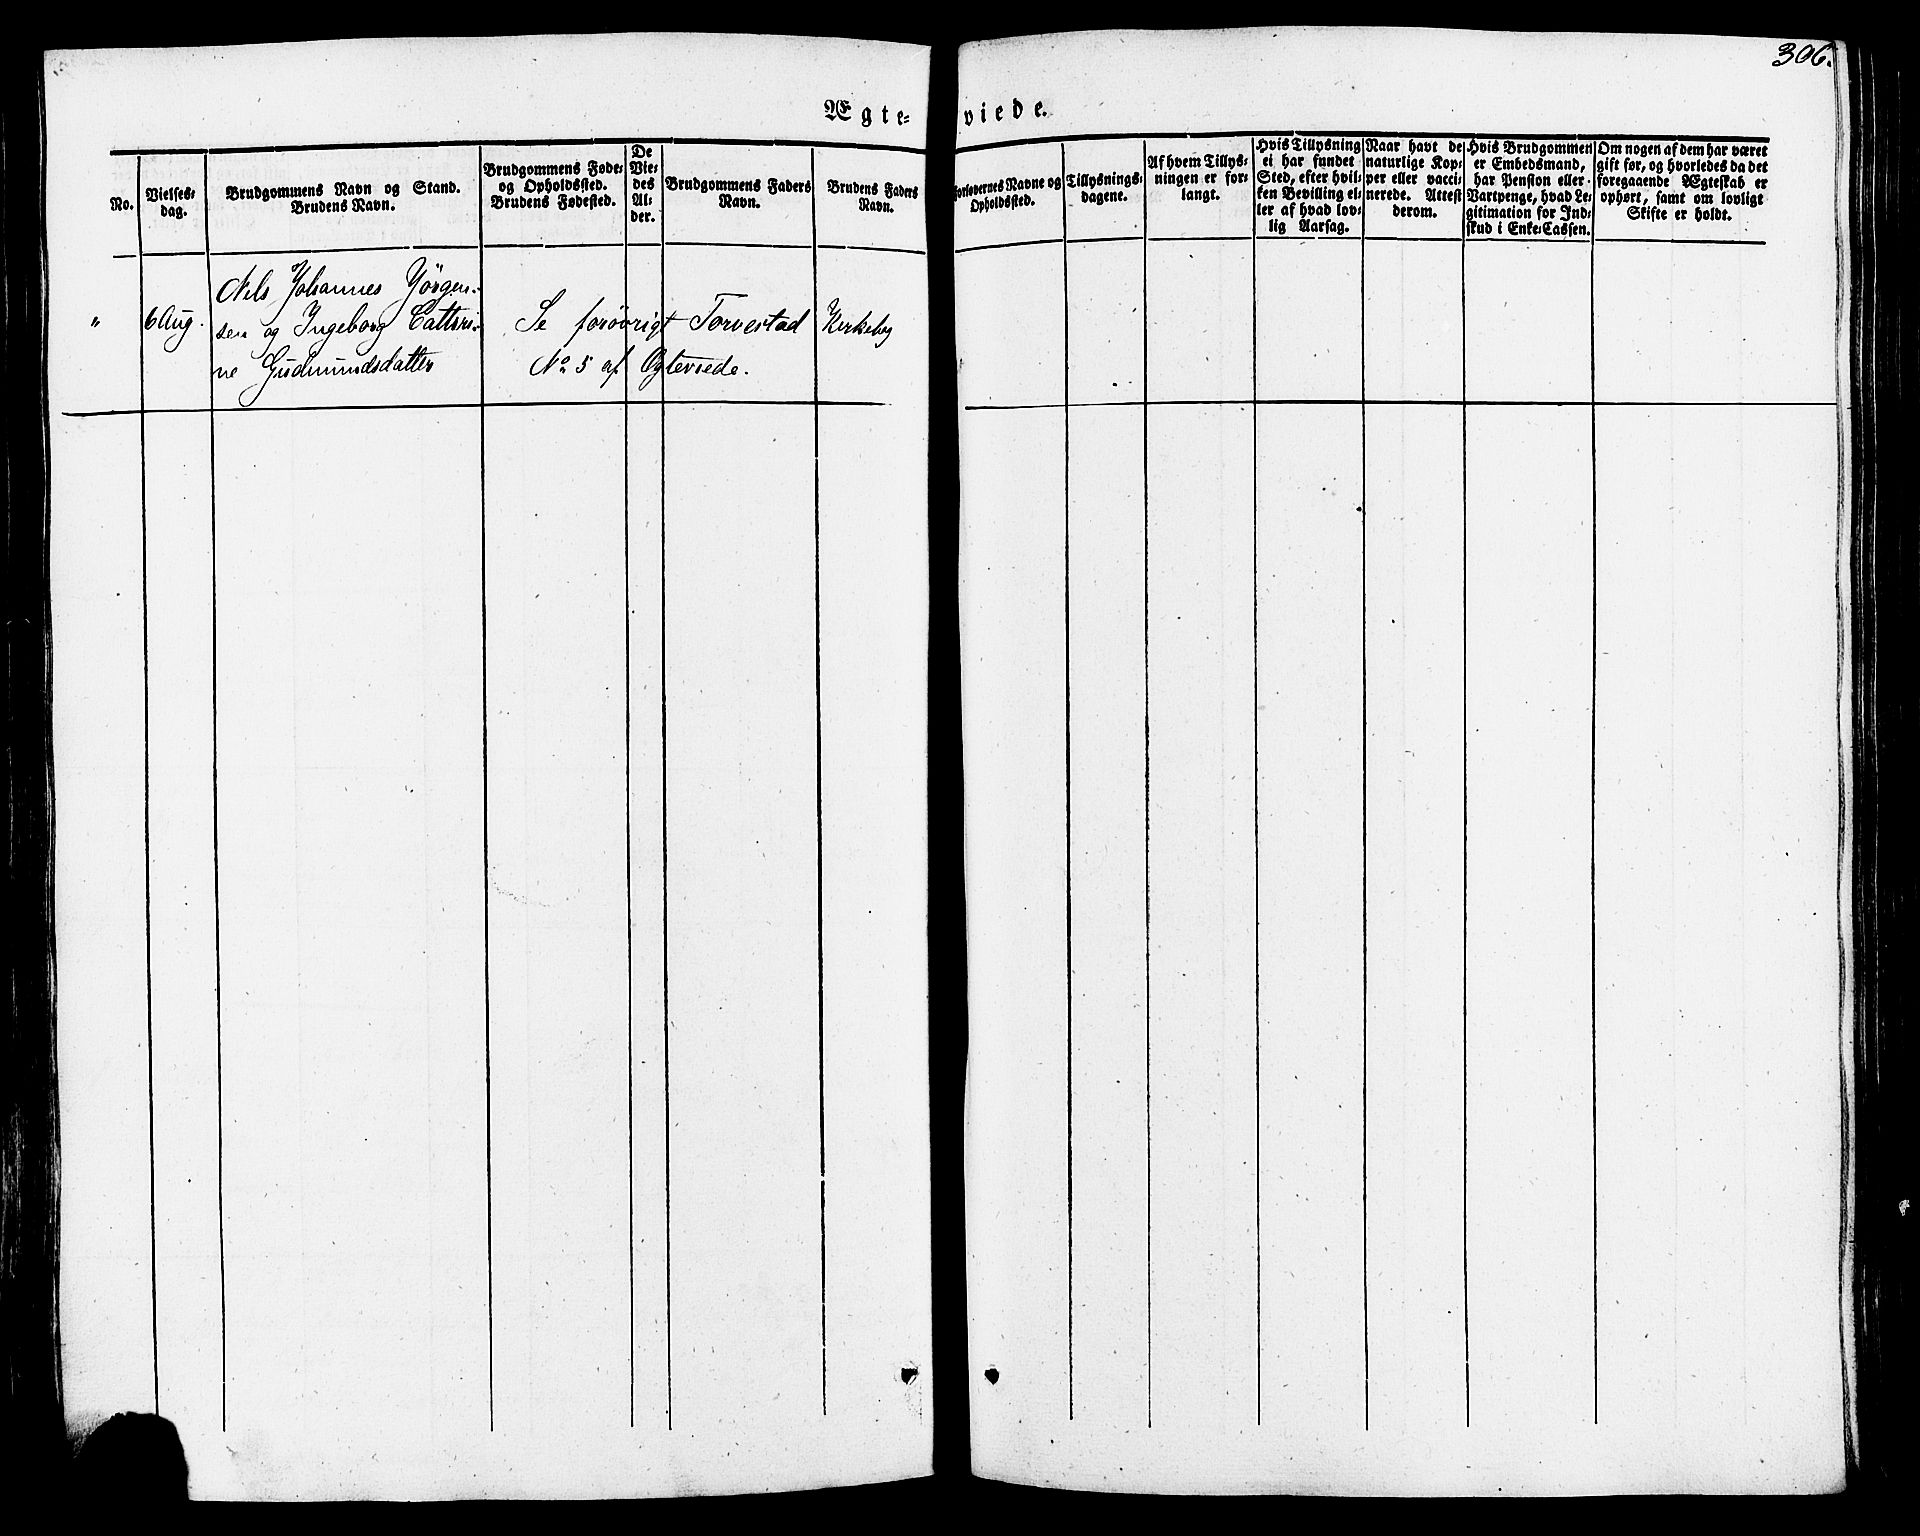 306.
Ægte-
viede.
No.
Vielses-
dag.
Brudgommens Navn og Stand.
Brudens Navn.
Brudgommens Føde-
og Opholdssted.
Brudens Fødested.
De
Vie-
des
Al-
der.
Brudgommens Faders
Navn.
Brudens Faders
Navn.
Forlovernes Navne og
Opholdssted.
Tillysnings-
dagene.
Af hvem Tillys-
ningen er for-
langt.
Hvis Tillysning
ei har fundet
Sted, efter hvil-
ken Bevilling el-
ler af hvad lov-
lig Aarsag.
Naar havt de
naturlige Kop-
per eller vacci-
nerede. Attest
derom.
Hvis Brudgommen
er Embedsmand,
har Pension eller
Vartpenge, hvad Le-
gitimation for Ind-
skud i Enke-Cassen.
Om nogen af dem har været
gift før, og hvorledes da det
foregaaende Ægteskab er
ophørt, samt om lovligt
Skifte er holdt.
Nels Johannes Jörgen-
" 6 Aug. sen og Ingeborg Cathri- Se forövrigt Torvestad Kirkebog
ne Gudmundsdatter No 5 af Ægteviede.